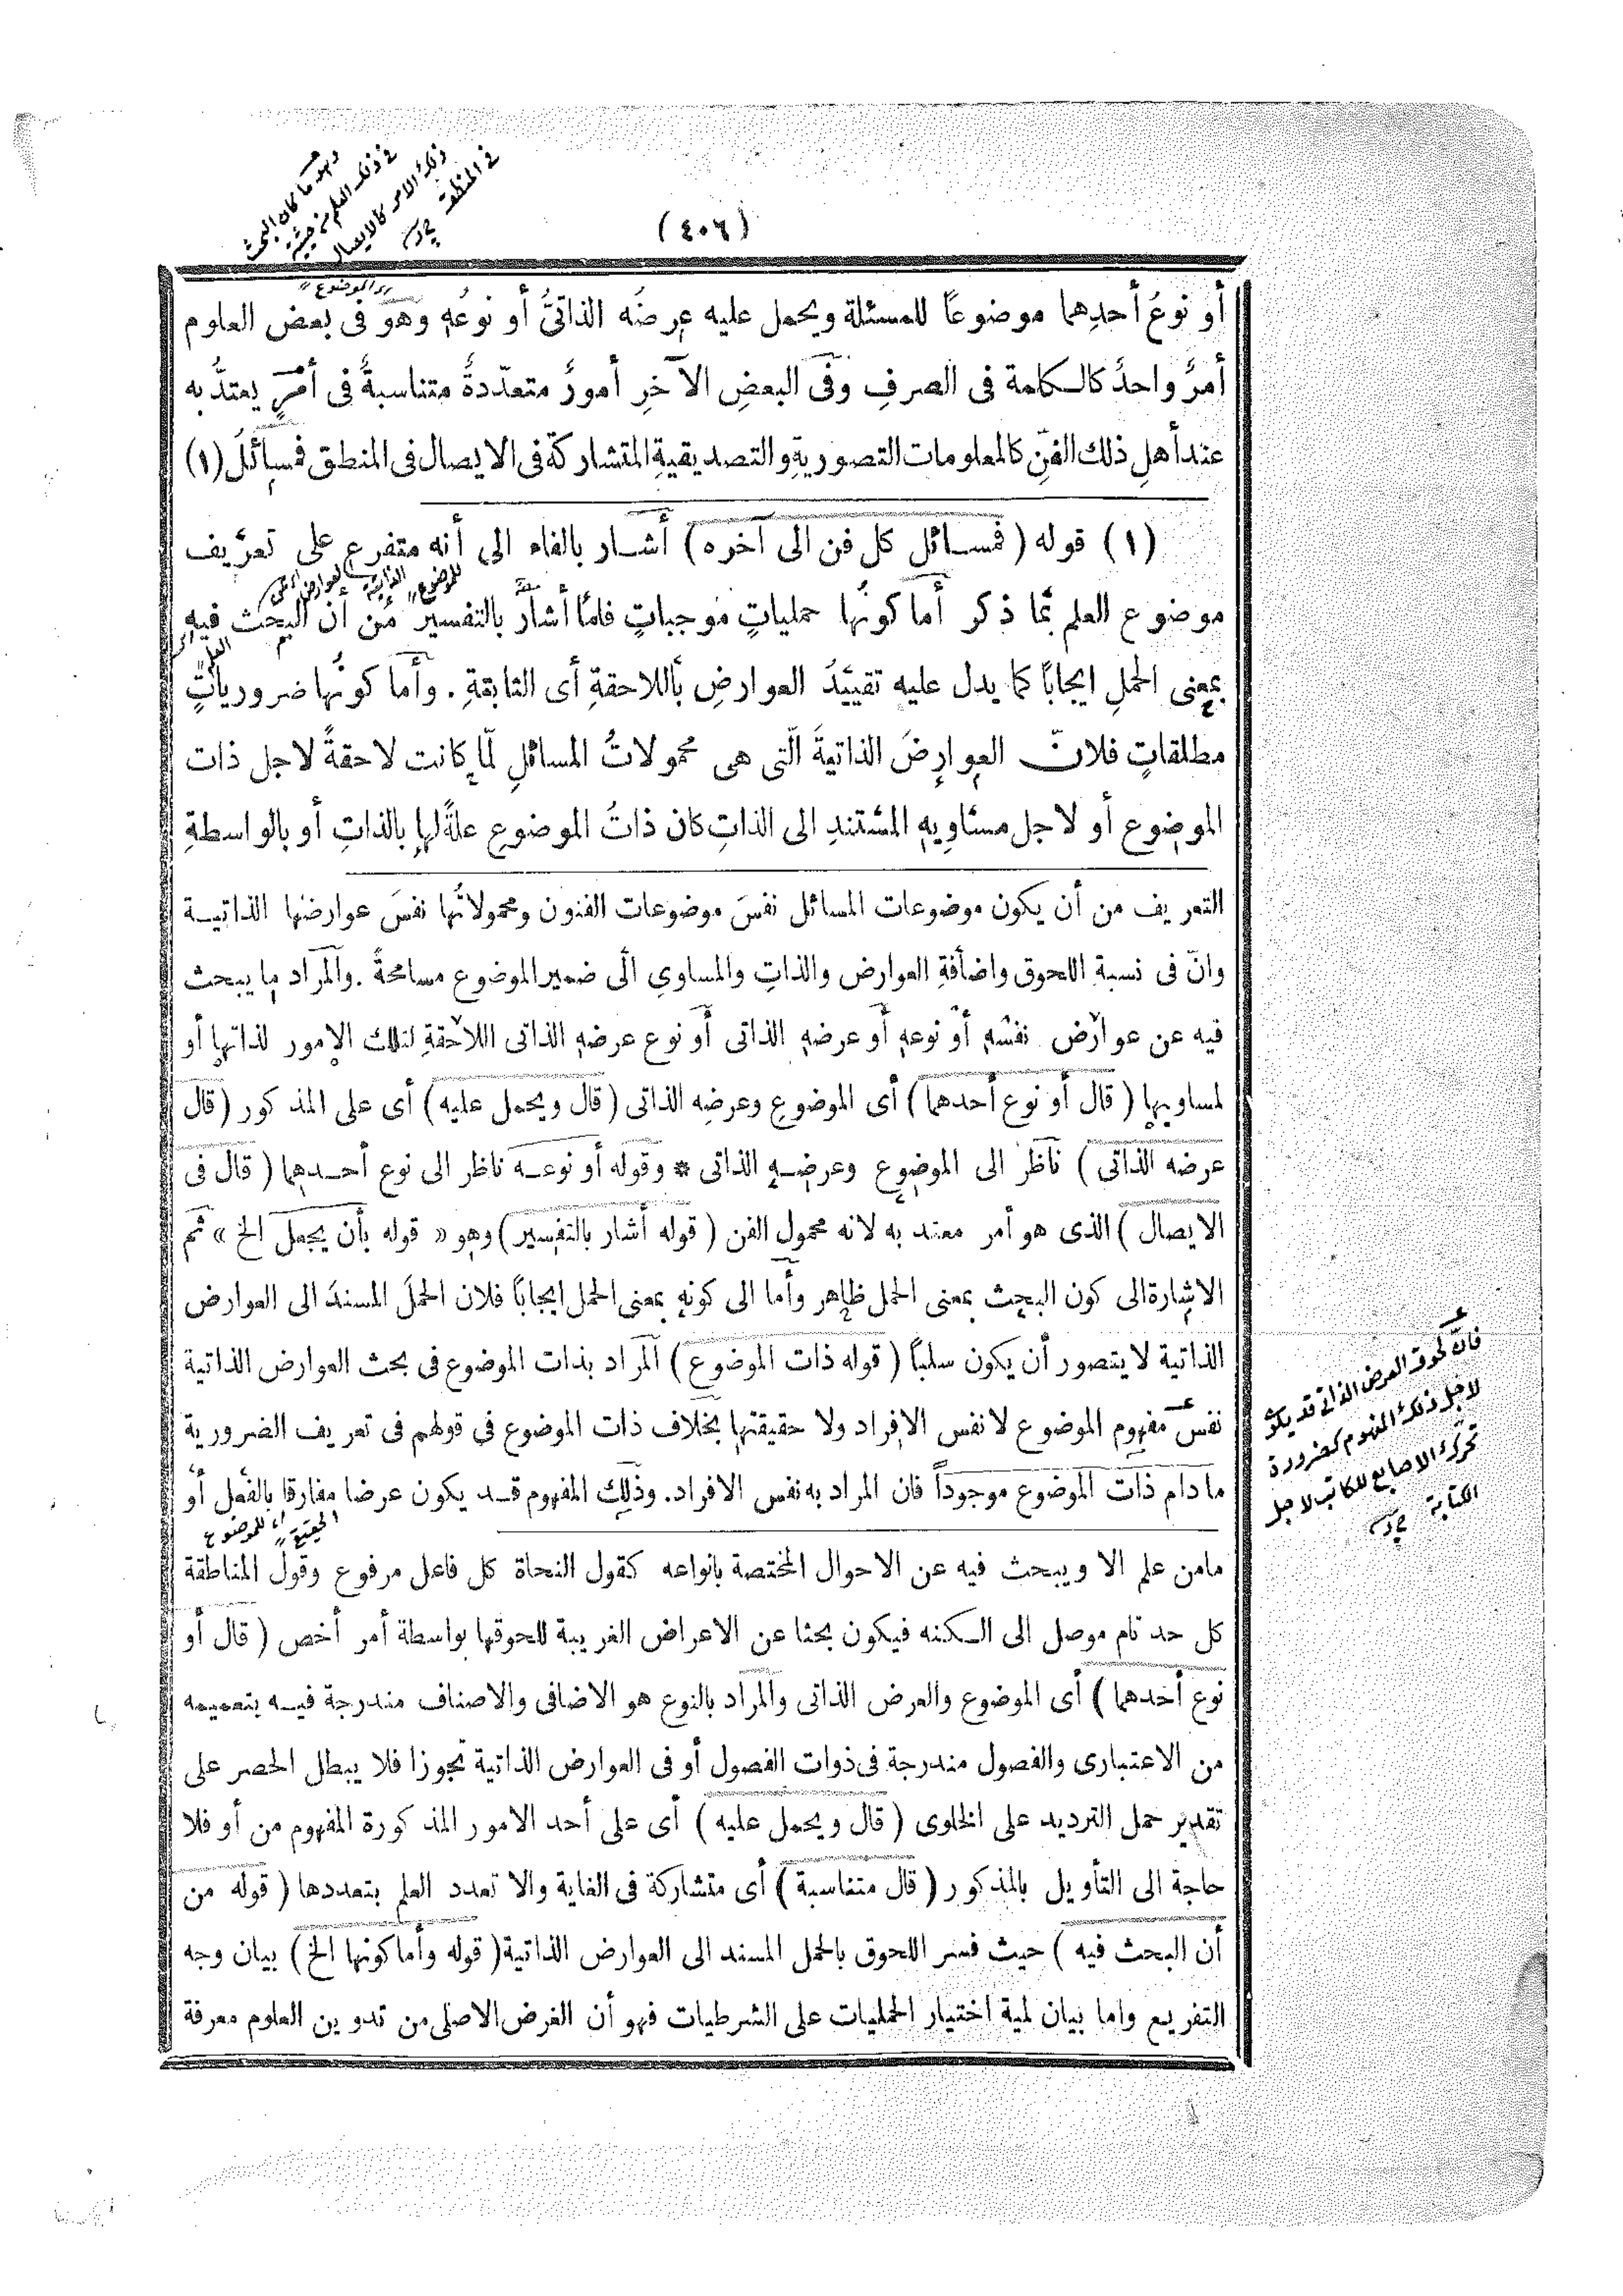 وهو ما كان البحث
فى ذلك العلم من حيثية
ذلك الامر كالايصال
فى المنطق
(٤٠٦)
أى الموضوع
أو نوعُ أحدِهما موضوعًا للمسئلة ويحمل عليه عرضُه الذاتىُّ أو نوعُه وهو فى بعض العلوم
أمرٌ واحدٌ كالكلمة فى الصرفِ وفى البعضِ الآخرِ أمورٌ متعدّدةٌ متناسبةٌ فى أمرٍ يعتدُّ به
عند أهلِ ذلك الفنِّ كالمعلومات التصوريةِ والتصديقيةِ المتشاركةِ فى الايصال فى المنطق فمسائلُ (١)
(١) قوله (فمسائل كل فن الى آخره) أشار بالفاء الى أنه متفرع على تعريف
للموضوع الذاتية العوارض
موضوع العلم بما ذكر أما كونُها حملياتٍ موجباتٍ فلِمَا أشار بالتفسير من أن البحث فيه
العلم
بمعنى الحملِ ايجابًا كما يدل عليه تقييدُ العوارضِ باللاحقةِ أى الثابتةِ. وأما كونُها ضرورياتٍ
مطلقاتٍ فلانّ العوارضَ الذاتيةَ الّتى هى محمولاتُ المسائلِ لمّا كانت لاحقةً لاجل ذات
الموضوع أو لاجل مساويه المستندِ الى الذاتِ كان ذاتُ الموضوعِ علةً لها بالذاتِ أو بالواسطةِ
التعريف من أن يكون موضوعات المسائل نفسَ موضوعات الفنون ومحمولاتُها نفسَ عوارضها الذاتية
وانّ فى نسبةِ اللحوق واضافةِ العوارض والذاتِ والمساوىِ الى ضمير الموضوع مسامحةً. والمراد ما يبحث
فيه عن عوارض نفسه أو نوعه أو عرضه الذاتى أو نوع عرضه الذاتى اللاحقةِ لتلك الامور لذاتها أو
لمساويها (قال أو نوع أحدهما) أى الموضوعِ وعرضِه الذاتى (قال ويحمل عليه) أى على المذكور (قال
عرضه الذاتى) ناظر الى الموضوع وعرضه الذاتى * وقوله أو نوعه ناظر الى نوع أحدهما (قال فى
الايصال) الذى هو أمر معتد به لانه محمول الفن (قوله أشار بالتفسير) وهو « قوله بأن يجعل الخ » ثم
الاشارة الى كون البحث بمعنى الحمل ظاهر وأما الى كونه بمعنى الحمل ايجابًا فلان الحملَ المسندَ الى العوارض
الذاتية لا يتصور أن يكون سلبًا (قوله ذات الموضوع) المراد بذات الموضوع فى بحث العوارض الذاتية
نفس مفهوم الموضوع لا نفس الافراد ولا حقيقتها بخلاف ذات الموضوع فى قولهم فى تعريف الضرورية
ما دام ذات الموضوع موجوداً فان المراد به نفس الافراد. وذلك المفهوم قد يكون عرضا مفارقا بالفعل أو
فانّ لحوق العرض الذاتى قد يكون
لاجل ذلك المفهوم كضرورة
تحرّك الاصابع للكاتب لاجل
الكتابة
للموضوع
مامن علم الا ويبحث فيه عن الاحوال المختصة بانواعه كقول النحاة كل فاعل مرفوع وقول المناطقة
كل حد تام موصل الى الكنه فيكون بحثا عن الاعراض الغريبة للحوقها بواسطة أمر أخص (قال أو
نوع أحدهما) أى الموضوع والعرض الذاتى والمراد بالنوع هو الاضافى والاصناف مندرجة فيه بتعميمه
من الاعتبارى والفصول مندرجة فى ذوات الفصول أو فى العوارض الذاتية تجوزا فلا يبطل الحصر على
تقدير حمل الترديد على الخلوى (قال ويحمل عليه) أى على أحد الامور المذكورة المفهوم من أو فلا
حاجة الى التأويل بالمذكور (قال متناسبة) أى متشاركة فى الغاية والا تعدد العلم بتعددها (قوله من
أن البحث فيه) حيث فسر اللحوق بالحمل المسند الى العوارض الذاتية (قوله وأما كونها الخ) بيان وجه
التفريع واما بيان لمية اختيار الحمليات على الشرطيات فهو أن الغرض الاصلى من تدوين العلوم معرفة